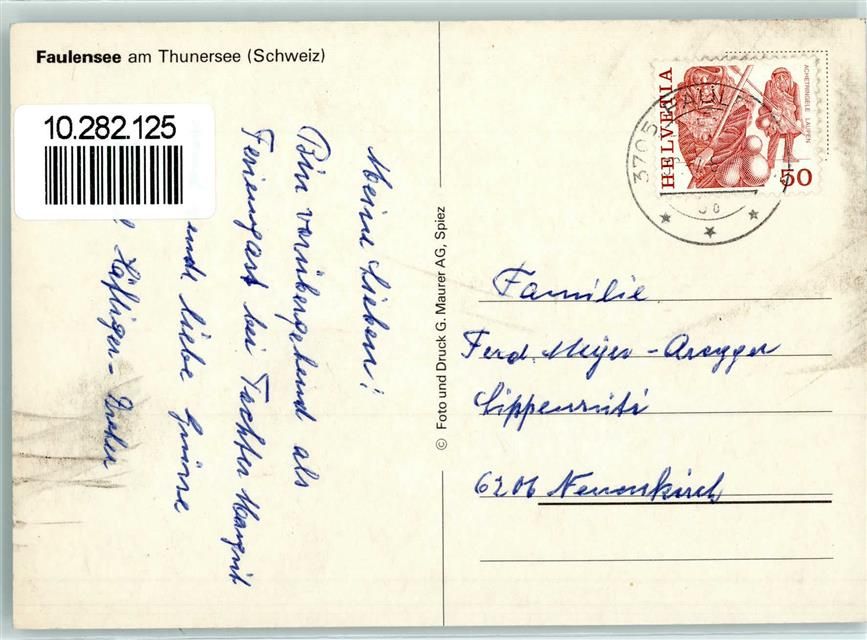 Faulensee am Thunersee (Schweiz)
10.282.125
Meine Lieben!
Bin vorübergehend als
Feriengast bei Tochter Margrit
sende liebe Grüsse
Häfliger-
© Foto und Druck G. Maurer AG, Spiez
HELVETIA
ACHETRINGELE LAUPEN
50
3705 FAUL
Familie
Ferd. Meyer-Aregger
Lippenrüti
6206 Neuenkirch